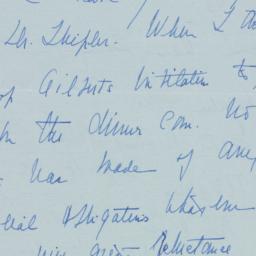 Dr. Shipler. When I
of Gilberts Invitation to
on the dinner Com. No
has made of any
cial obligations
with great Reluctance